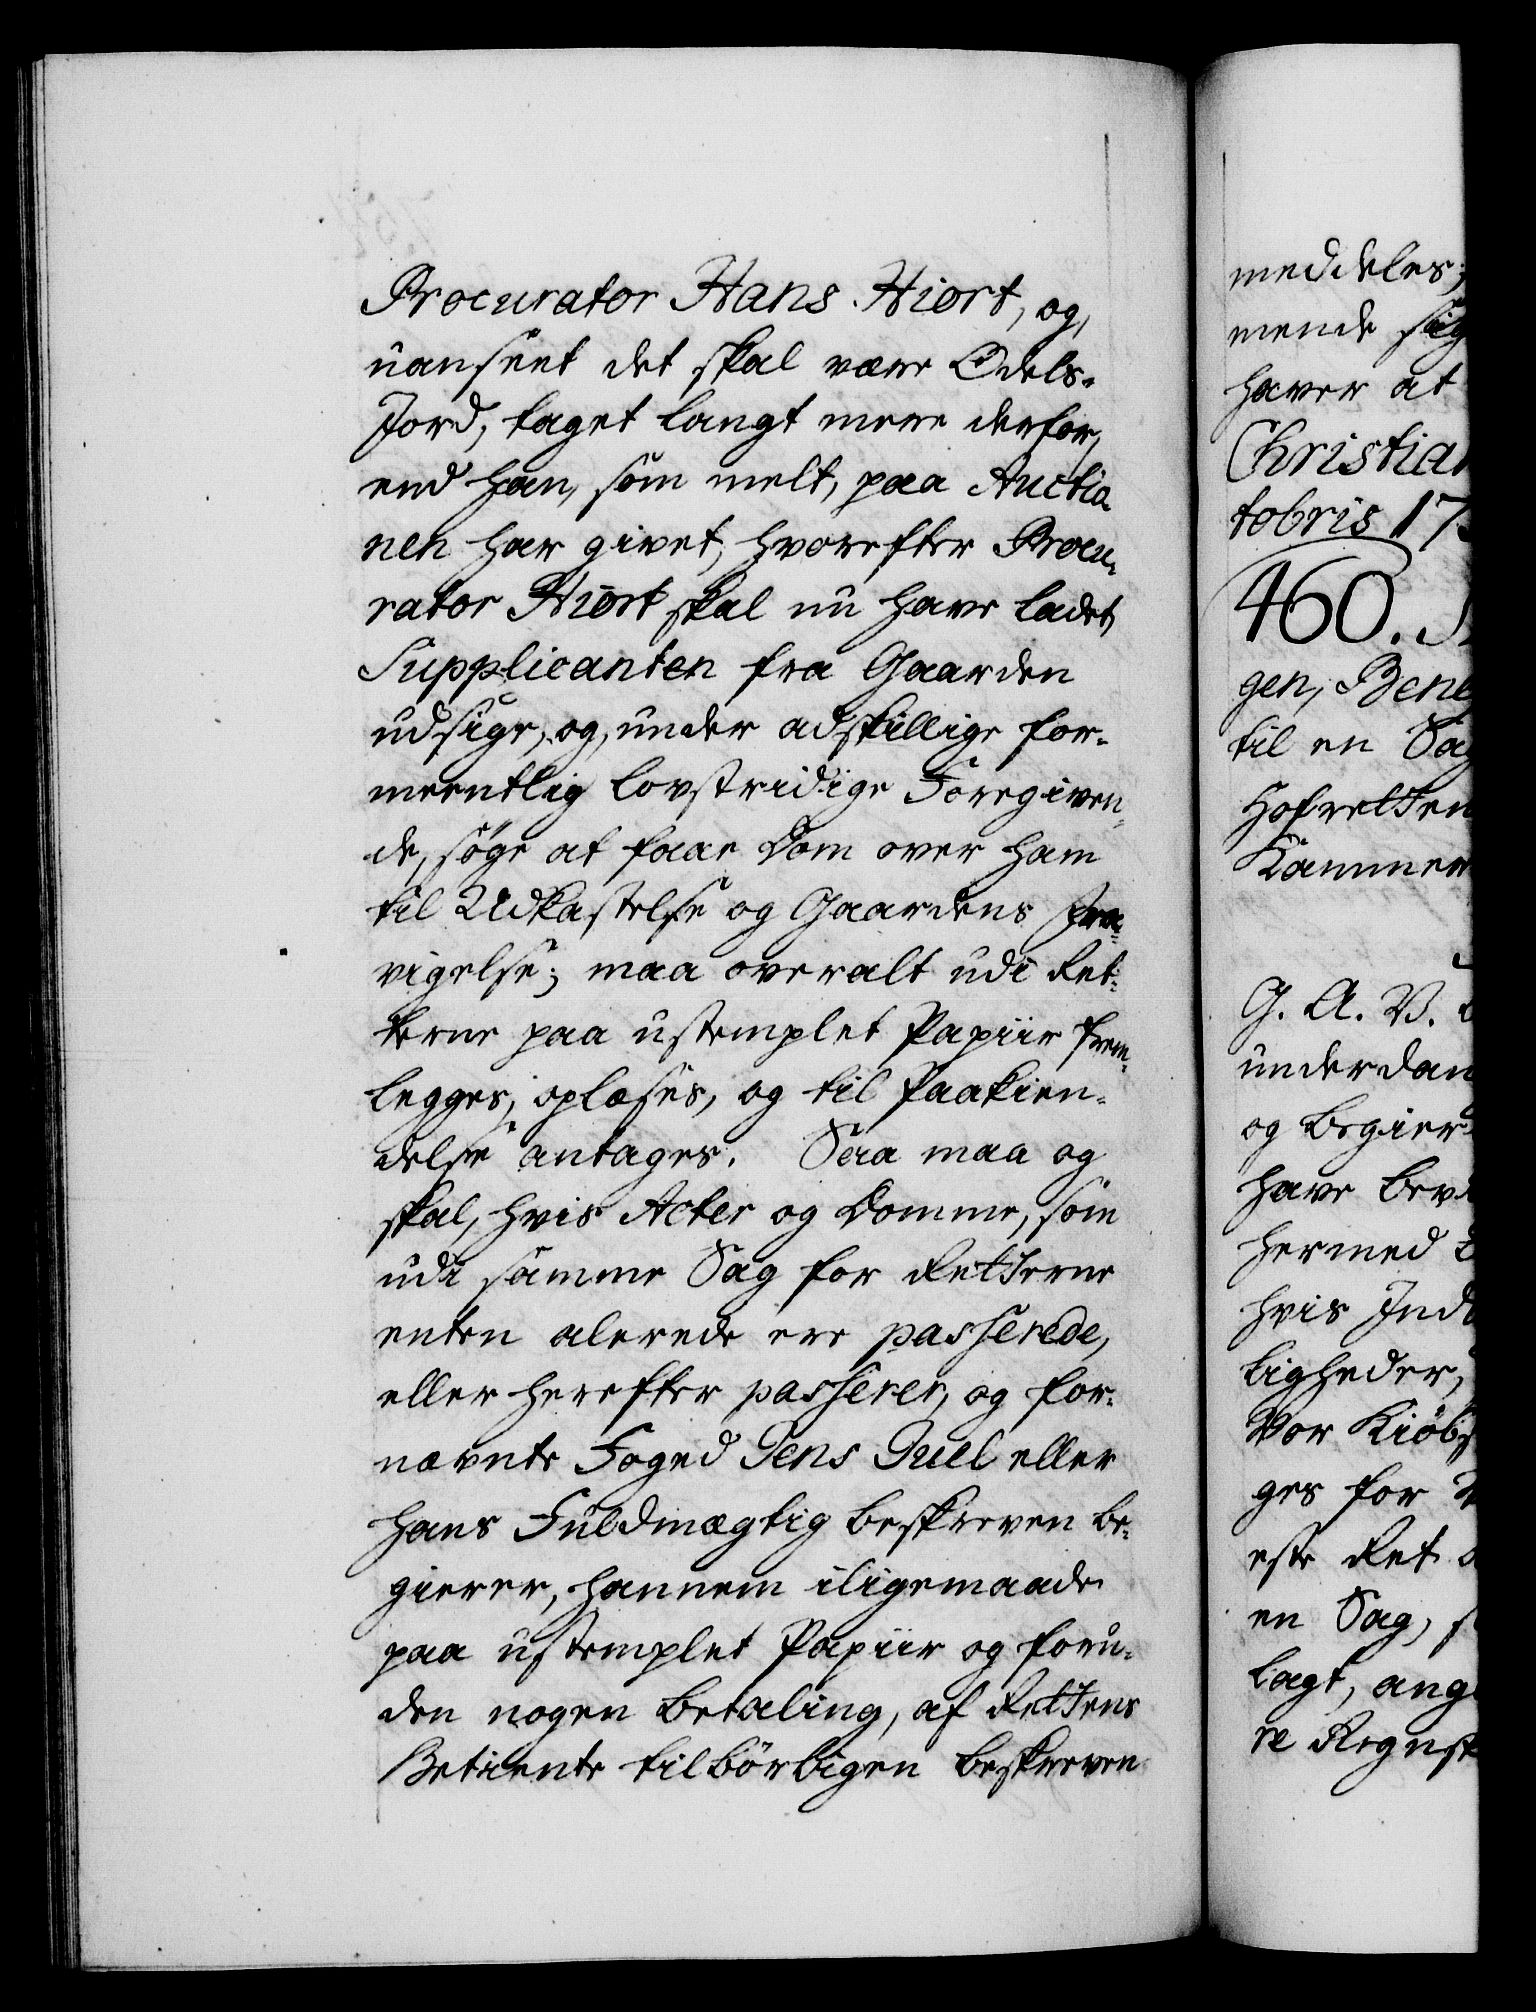 Procurator Hans Hiort, og,
uanseet det skal være Odels-
Jord, taget langt mere derfor,
end han, som melt, paa Auctio-
nen har givet, hvorefter Procu-
rator Hiort skal nu have ladet
Supplicanten fra Gaarden
udsige, og, under adskillige for-
meentlig lovstridige Foregiven-
de, søge at faae Dom over ham
til Udkastelse og Gaardens fra-
vigelse; maa overalt udi Ret-
terne paa ustemplet Papiir frem-
legges, oplæses, og til Paakien-
delse antages. Saa maa og
skal, hvis Acter og Domme, som
udi samme Sag for Retterne
enten alerede ere passerede,
eller herefter passerer, og for-
nævnte Foged Jens Juel eller
hans Fuldmægtig beskreven be-
gierer, hannem iligemaade
paa ustemplet Papiir og foru-
den nogen Betaling, af Rettens
Betiente tilbørligen beskreven
meddeles;
mende sig
haver at
Christian
tobris 17
460.
gen,
til en Sag
Hofretten
Kammer
G. A. V.
underdan
og begier
have bev
hermed
hvis Ind
ligheder,
Vor Kiøb
ges for
este Ret
en Sag,
lagt, ang
re Regnsk